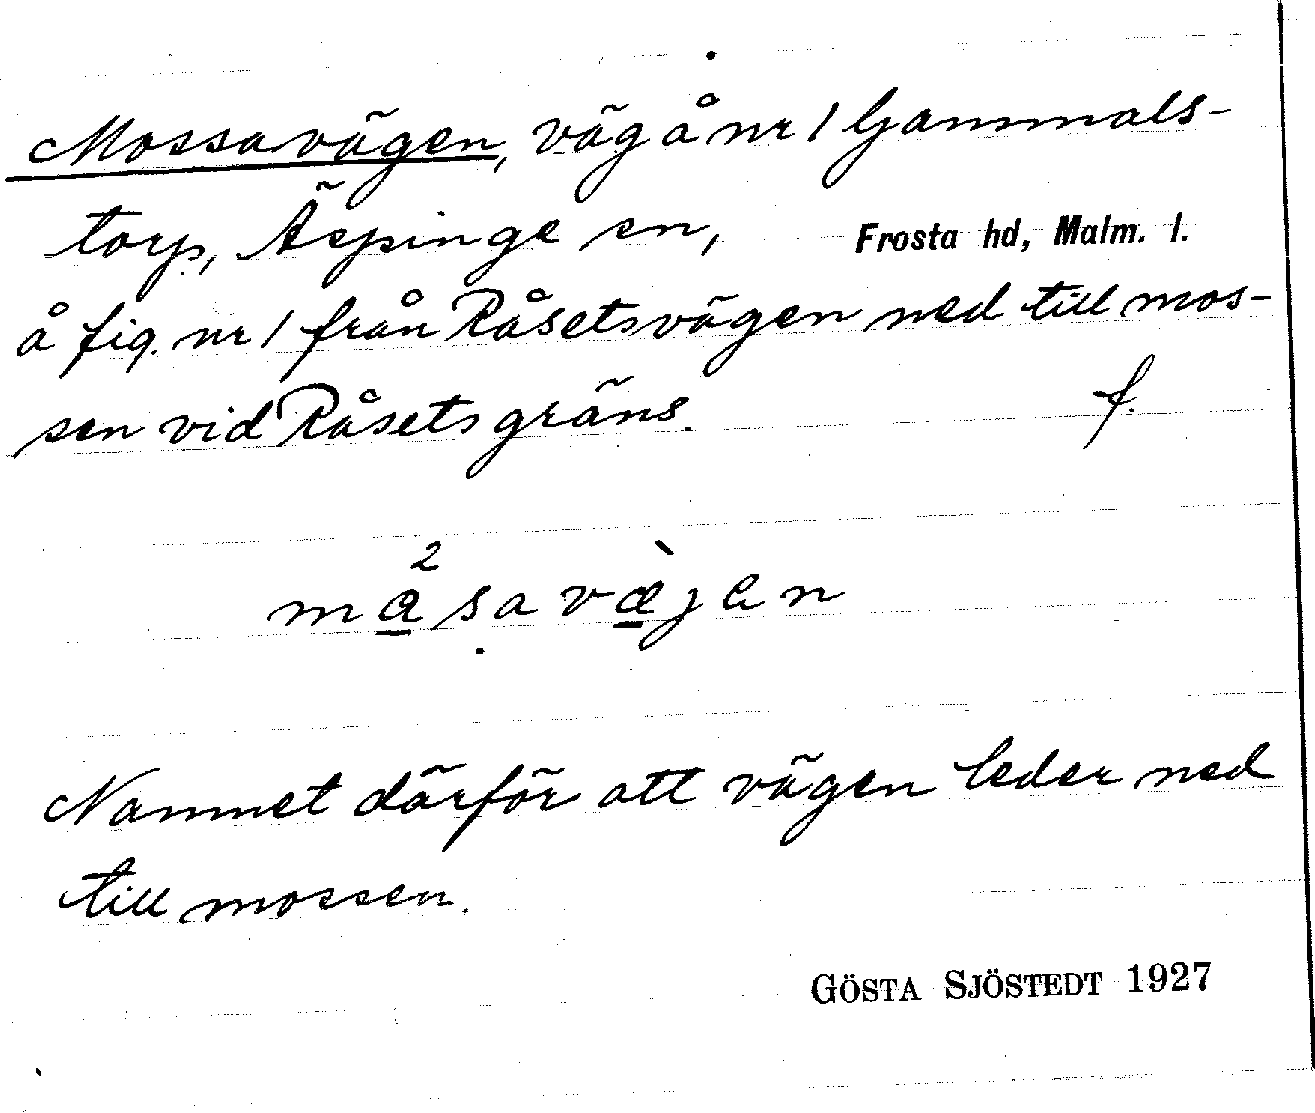 Mossavägen, väg å nr 1 Gammals-
torp, Äspinge sn, Frosta hd, Malm. l.
å fig. nr 1 från Råsetsvägen ned till mos-
sen vid Råsets gräns. f.
må²savæ̀jen
Namnet därför att vägen leder ned
till mossen.
GÖSTA SJÖSTEDT 1927